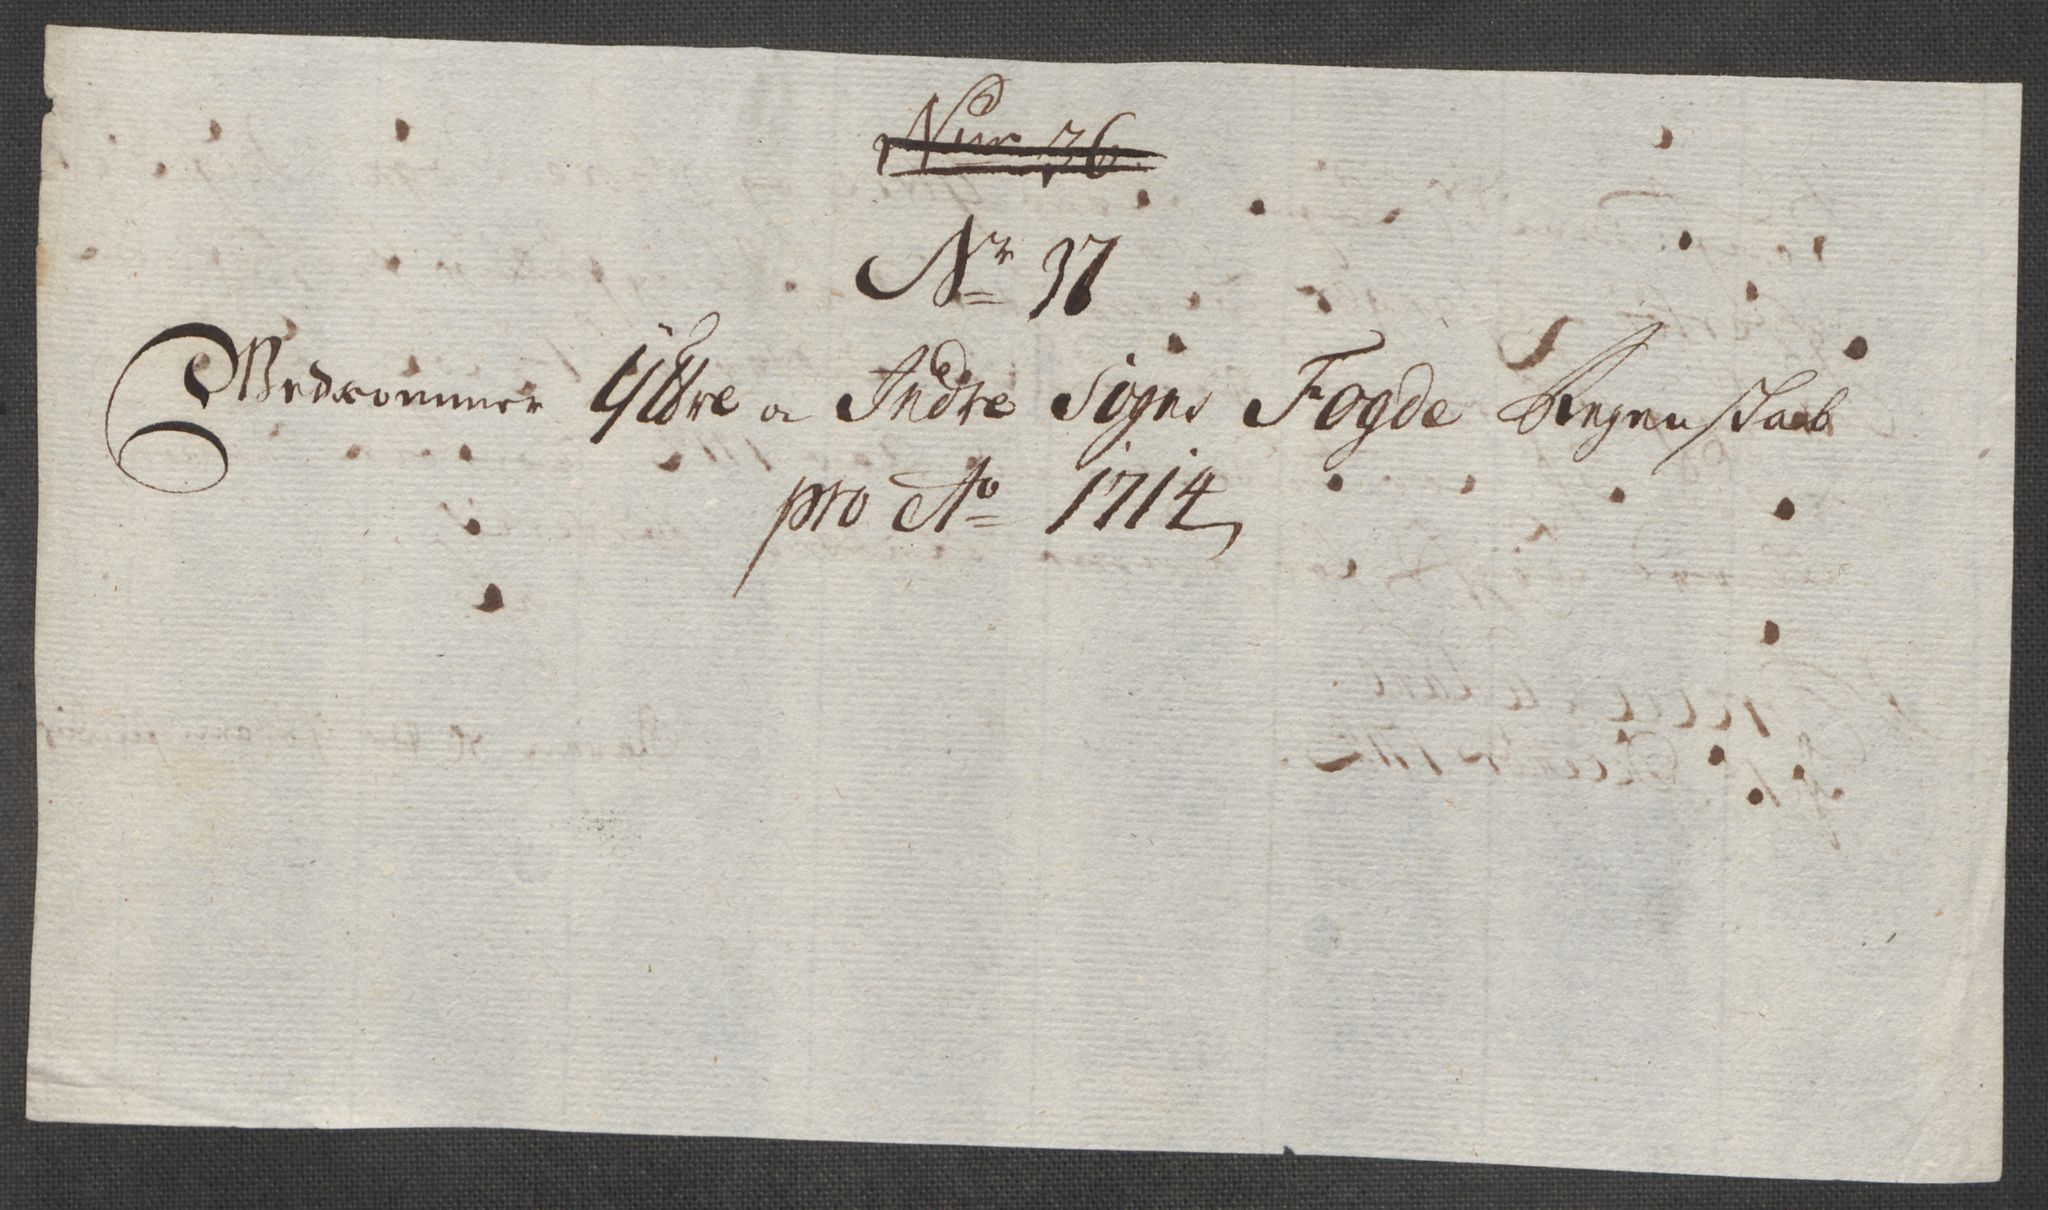 Num 36.
Nr 37
Vedkommer Ytdre o Indre Sogns Fogde Regenskab
pro Ao 1714